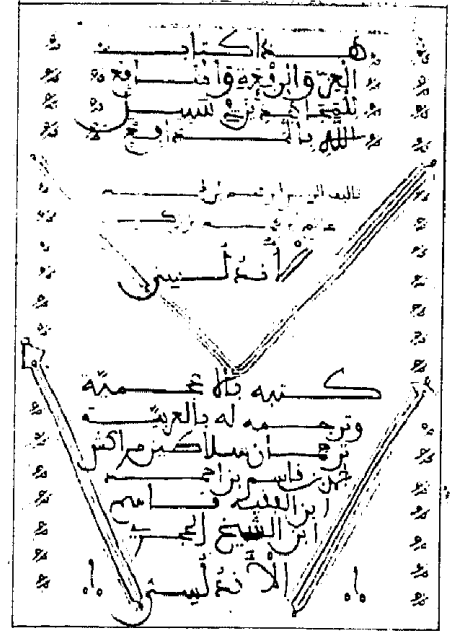 هذا كتاب
العز والرفعة والمنافع
للمجاهدين في سبيل
الله بالمدافع
تاليف الريس ابرهيم بن
غانم بن محمد بن زكريا
الأندلسي
كتبه بالاعجمية
وترجمه له بالعربية
ترجمان سلاطين مراكش
احمد بن قاسم بن احمد
ابن الفقيه قاسم
ابن الشيخ الحجري
الأندلسي